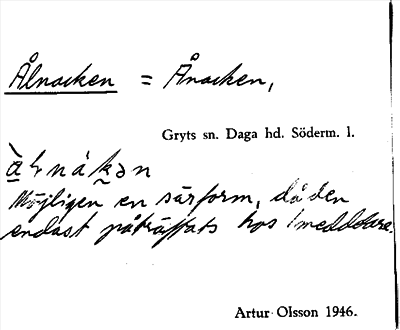 Ålnacken = Ånacken,
Gryts sn. Daga hd. Söderm. l.
Möjligen en särform, då den
endast påträffats hos 1 meddelare.
Artur Olsson 1946.